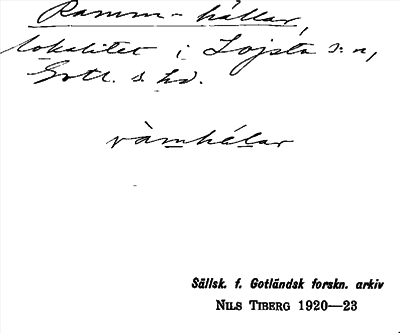 Ramm-hällar,
lokalitet i Lojsta s:n,
Gotl. s. hd.
ràmhä́lar
Sällsk. f. Gotländsk forskn. arkiv
NILS TIBERG 1920—23